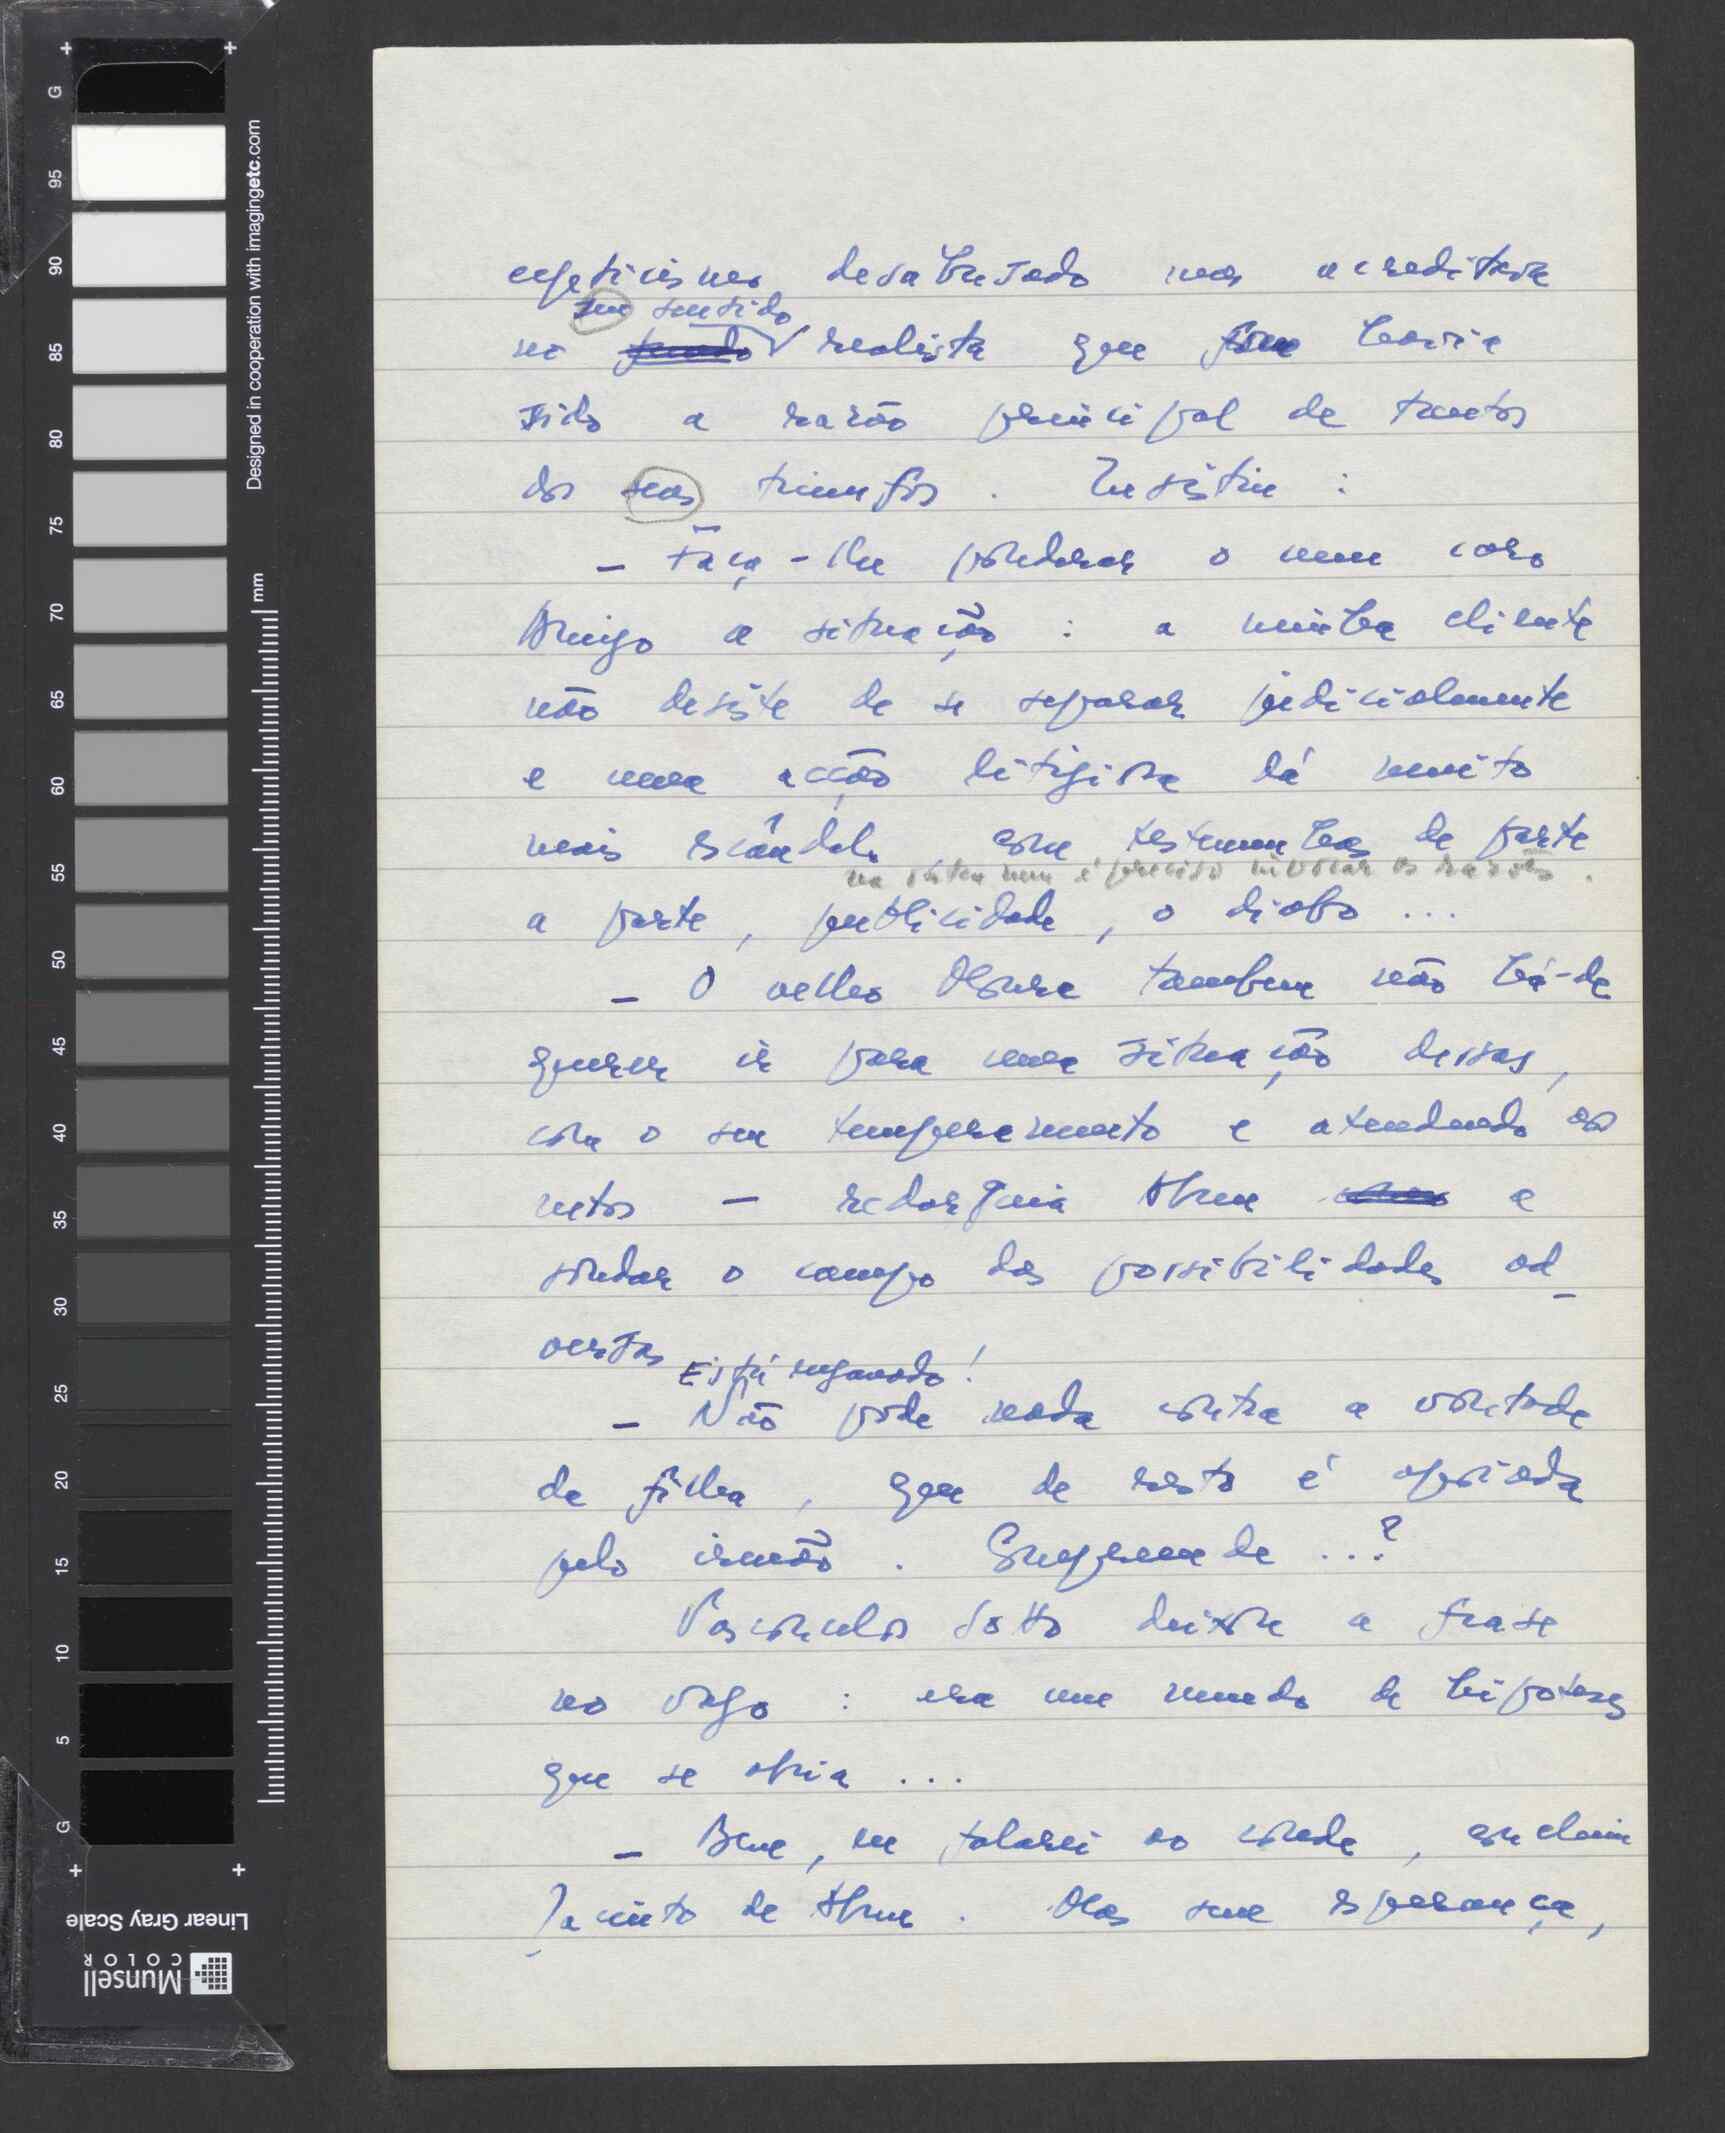 cepticismo desabusado mas acreditava
seu sentido
no realista que fôra havia
sido a razão principal de tantos
dos seus triunfos. Insistiu:
— Faça-lhe ponderar o meu caro
Amigo a situação: a minha cliente
não desiste de se separar judicialmente
e uma acção litigiosa dá muito
mais escândalo, com testemunhas de parte
na outra nem é preciso invocar as razões.
a parte, publicidade, o diabo...
— O velho Moura tambem não há-de
querer ir para uma situação dessas,
com o seu temperamento e atendendo aos
netos — redorguia Abreu a
sondar o campo das possibilidades ad_
versas
Está enganado!
— Não póde nada contra a vontade
da filha, que de resto é apoiada
pelo irmão. Compreende...?
Vasconcelos Sotto deixou a frase
no vago: era um mundo de hipoteses
que se abria...
— Bem, eu falarei ao conde, concluiu
Jacinto de Abreu. Mas sem esperança,
G
95
90
85
80
75
70
65
60
55
50
45
40
35
30
25
20
15
10
5
G
mm
Designed in cooperation with imagingetc.com
Munsell
COLOR
Linear Gray Scale